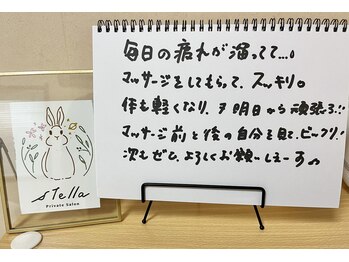 毎日の疲れが溜ってて…。
マッサージをしてもらって、スッキリ。
体も軽くなり、明日から頑張る!!
マッサージ前と後の自分を見て、ビックリ!
次もぜひ、よろしくお願いしまーす
stella
Private Salon